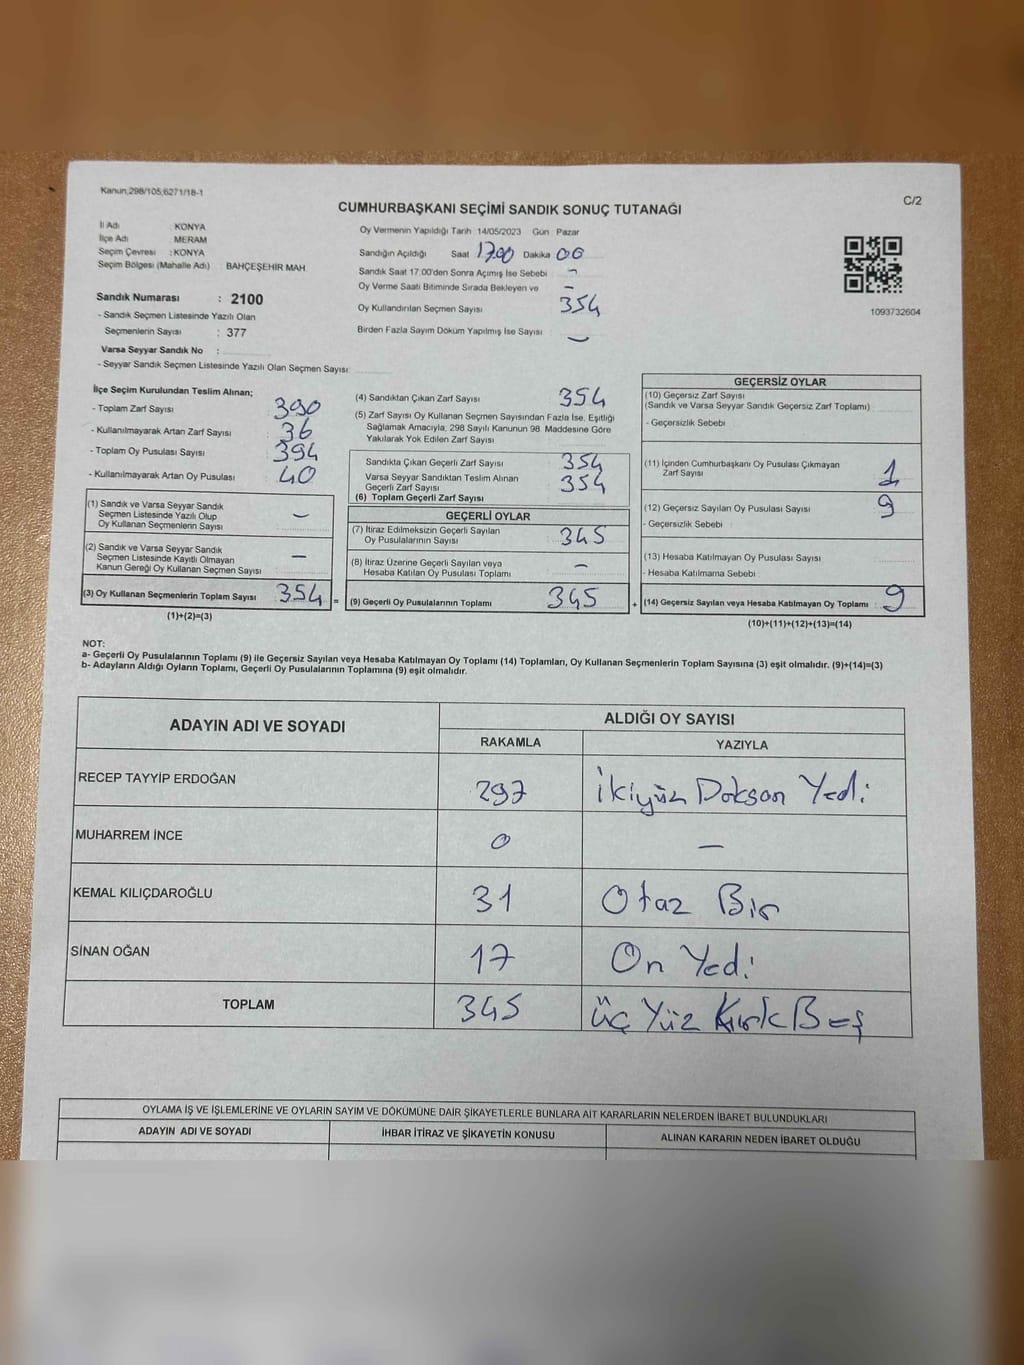 Kanun,298/105,6271/18-1
C/2
CUMHURBAŞKANI SEÇİMİ SANDIK SONUÇ TUTANAĞI
İl Adı : KONYA
İlçe Adı : MERAM
Seçim Çevresi : KONYA
Seçim Bölgesi (Mahalle Adı) BAHÇEŞEHİR MAH
Sandık Numarası : 2100
- Sandık Seçmen Listesinde Yazılı Olan
Seçmenlerin Sayısı : 377
Varsa Seyyar Sandık No :
- Seyyar Sandık Seçmen Listesinde Yazılı Olan Seçmen Sayısı:
Oy Vermenin Yapıldığı Tarih 14/05/2023 Gün Pazar
Sandığın Açıldığı Saat 17.00 Dakika 00
Sandık Saat 17.00'den Sonra Açımış İse Sebebi -
Oy Verme Saati Bitiminde Sırada Bekleyen ve -
Oy Kullandırılan Seçmen Sayısı 354
Birden Fazla Sayım Döküm Yapılmış İse Sayısı -
1093732604
İlçe Seçim Kurulundan Teslim Alınan;
- Toplam Zarf Sayısı 390
- Kullanılmayarak Artan Zarf Sayısı 36
- Toplam Oy Pusulası Sayısı 394
- Kullanılmayarak Artan Oy Pusulası 40
(1) Sandık ve Varsa Seyyar Sandık
Seçmen Listesinde Yazılı Olup
Oy Kullanan Seçmenlerin Sayısı -
(2) Sandık ve Varsa Seyyar Sandık
Seçmen Listesinde Kayıtlı Olmayan
Kanun Gereği Oy Kullanan Seçmen Sayısı -
(3) Oy Kullanan Seçmenlerin Toplam Sayısı 354 =
(1)+(2)=(3)
(4) Sandıktan Çıkan Zarf Sayısı 354
(5) Zarf Sayısı Oy Kullanan Seçmen Sayısından Fazla İse, Eşitliği
Sağlamak Amacıyla, 298 Sayılı Kanunun 98. Maddesine Göre
Yakılarak Yok Edilen Zarf Sayısı
Sandıkta Çıkan Geçerli Zarf Sayısı 354
Varsa Seyyar Sandıktan Teslim Alınan
Geçerli Zarf Sayısı 354
(6) Toplam Geçerli Zarf Sayısı
GEÇERLİ OYLAR
(7) İtiraz Edilmeksizin Geçerli Sayılan
Oy Pusulalarının Sayısı 345
(8) İtiraz Üzerine Geçerli Sayılan veya
Hesaba Katılan Oy Pusulası Toplamı -
(9) Geçerli Oy Pusulalarının Toplamı 345 +
GEÇERSİZ OYLAR
(10) Geçersiz Zarf Sayısı
(Sandık ve Varsa Seyyar Sandık Geçersiz Zarf Toplamı)
- Geçersizlik Sebebi
(11) İçinden Cumhurbaşkanı Oy Pusulası Çıkmayan
Zarf Sayısı 1
(12) Geçersiz Sayılan Oy Pusulası Sayısı 9
- Geçersizlik Sebebi
(13) Hesaba Katılmayan Oy Pusulası Sayısı
- Hesaba Katılmama Sebebi
(14) Geçersiz Sayılan veya Hesaba Katılmayan Oy Toplamı : 9
(10)+(11)+(12)+(13)=(14)
NOT:
a- Geçerli Oy Pusulalarının Toplamı (9) ile Geçersiz Sayılan veya Hesaba Katılmayan Oy Toplamı (14) Toplamları, Oy Kullanan Seçmenlerin Toplam Sayısına (3) eşit olmalıdır. (9)+(14)=(3)
b- Adayların Aldığı Oyların Toplamı, Geçerli Oy Pusulalarının Toplamına (9) eşit olmalıdır.
ADAYIN ADI VE SOYADI ALDIĞI OY SAYISI
RAKAMLA YAZIYLA
RECEP TAYYİP ERDOĞAN 297 İkiyüz Doksan Yedi
MUHARREM İNCE 0 -
KEMAL KILIÇDAROĞLU 31 Otuz Bir
SİNAN OĞAN 17 On Yedi
TOPLAM 345 üç Yüz Kırk Beş
OYLAMA İŞ VE İŞLEMLERİNE VE OYLARIN SAYIM VE DÖKÜMÜNE DAİR ŞİKAYETLERLE BUNLARA AİT KARARLARIN NELERDEN İBARET BULUNDUKLARI
ADAYIN ADI VE SOYADI İHBAR İTİRAZ VE ŞİKAYETİN KONUSU ALINAN KARARIN NEDEN İBARET OLDUĞU